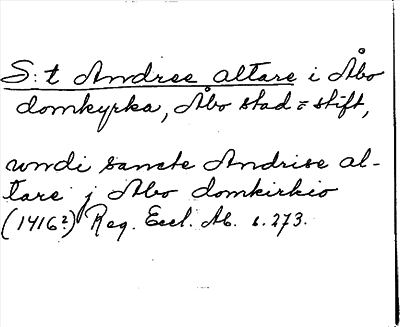 S:t Andree altare i Åbo
domkyrka, Åbo stad = stift,
undi sancte Andrise al-
tare j Abo domkirkio
(1416?) Reg. Eccl. Ab. s. 273.